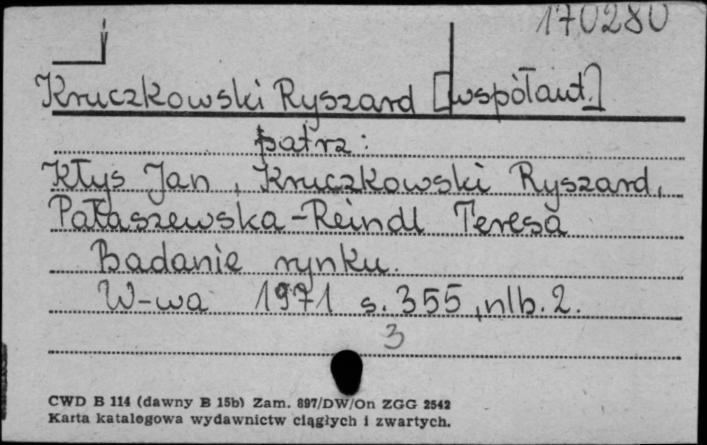 170280
Kruczkowski Ryszard [współaut.]
patrz:
Kłys Jan, Kruczkowski Ryszard,
Pałaszewska-Reindl Teresa
Badanie rynku.
W-wa 1971 s. 355, nlb. 2.
3
CWD B 114 (dawny B 15b) Zam. 897/DW/On ZGG 2542
Karta katalogowa wydawnictw ciągłych i zwartych.